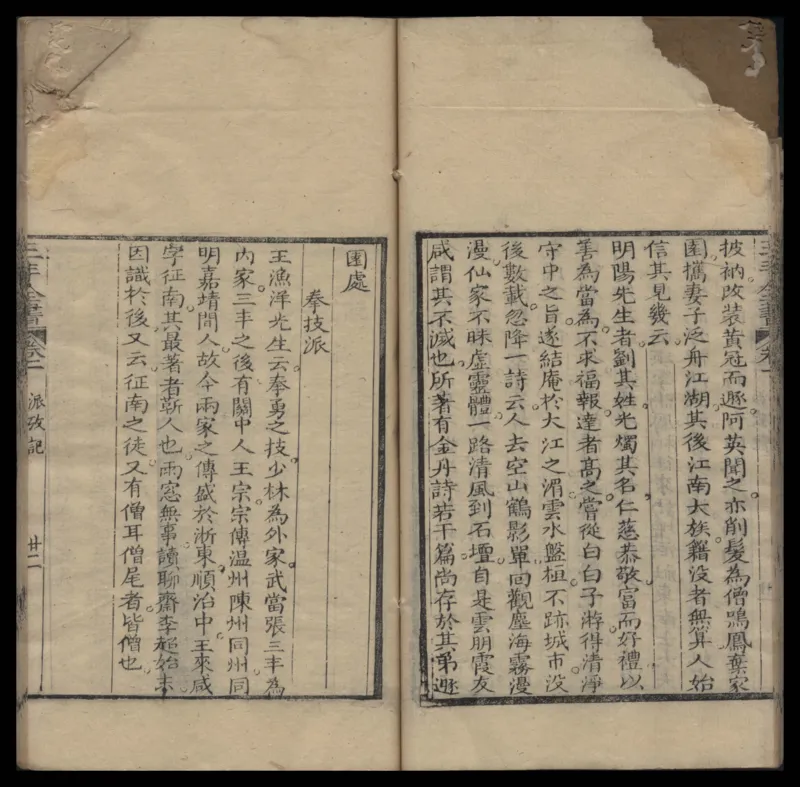 披衲改装黃冠而遯阿英聞之亦削髮為僧鳴鳳棄家
園攜妻子泛舟江湖其後江南大族籍没者無算人始
信其見幾云
明陽先生者劉其姓光燭其名仁慈恭敬富而好禮以
善為當為不求福報達者高之嘗從白白子游得清淨
守中之旨遂結庵於大江之湄雲水盤桓不跡城市没
後數載忽降一詩云人去空山鶴影單回觀塵海霧漫
漫仙家不昧虛靈體一路清風到石壇自是雲朋霞友
咸謂其不滅也所著有金丹詩若干篇尚存於其弟遯
園處
拳技派
王漁洋先生云拳勇之技少林為外家武當張三丰為
内家三丰之後有關中人王宗宗傳温州陳州同州同
明嘉靖間人故今兩家之傳盛於浙東順治中王來咸
字征南其最著者靳人也雨窓無事讀聊齋李超始末
因識於後又云征南之徒又有僧耳僧尾者皆僧也
三丰全書 卷二 派攷記 廿二